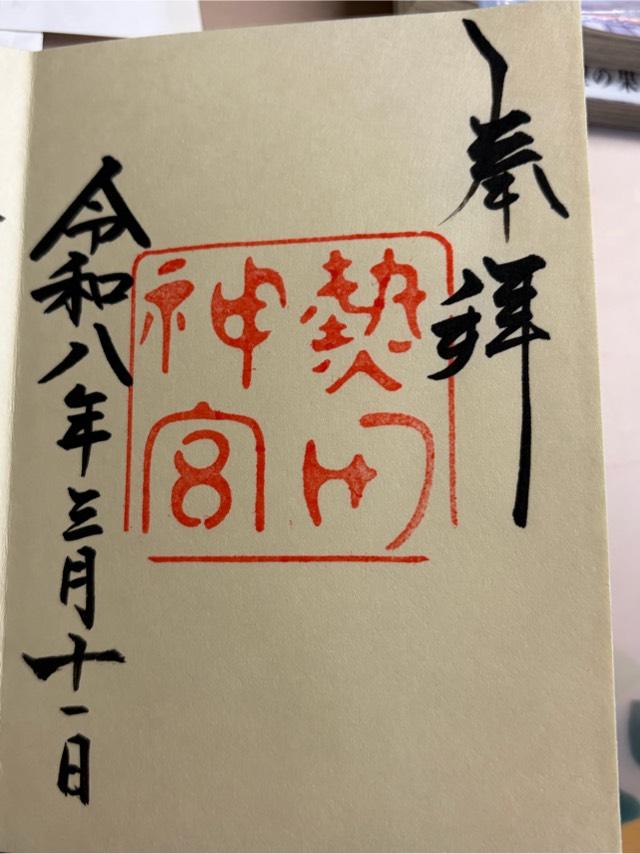 奉拝
熱田
神宮
令和八年三月十一日
の果